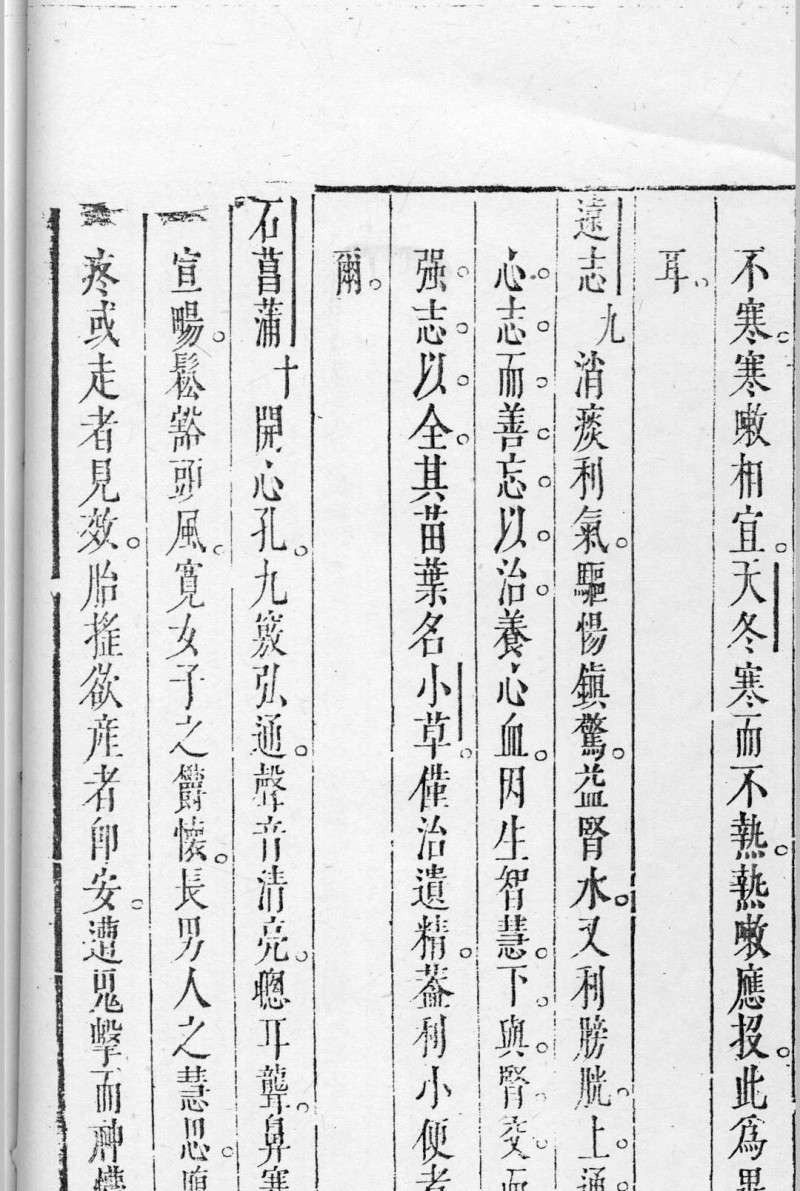 不寒寒嗽相宜天冬寒而不熱熱嗽應投此為異
耳
遠志九消痰利氣驅惕鎮驚益腎水又利膀胱上通
心志而善忘以治養心血因生智慧下與腎交而
强志以全其苗葉名小草僅治遺精葢利小便者
爾
石菖蒲十開心孔九竅弘通聲音清亮聰耳聾鼻塞
宣暢鬆豁頭風寛女子之欝懷長男人之慧思
疼或走者見效胎搖欲産者卽安遭鬼擊而神